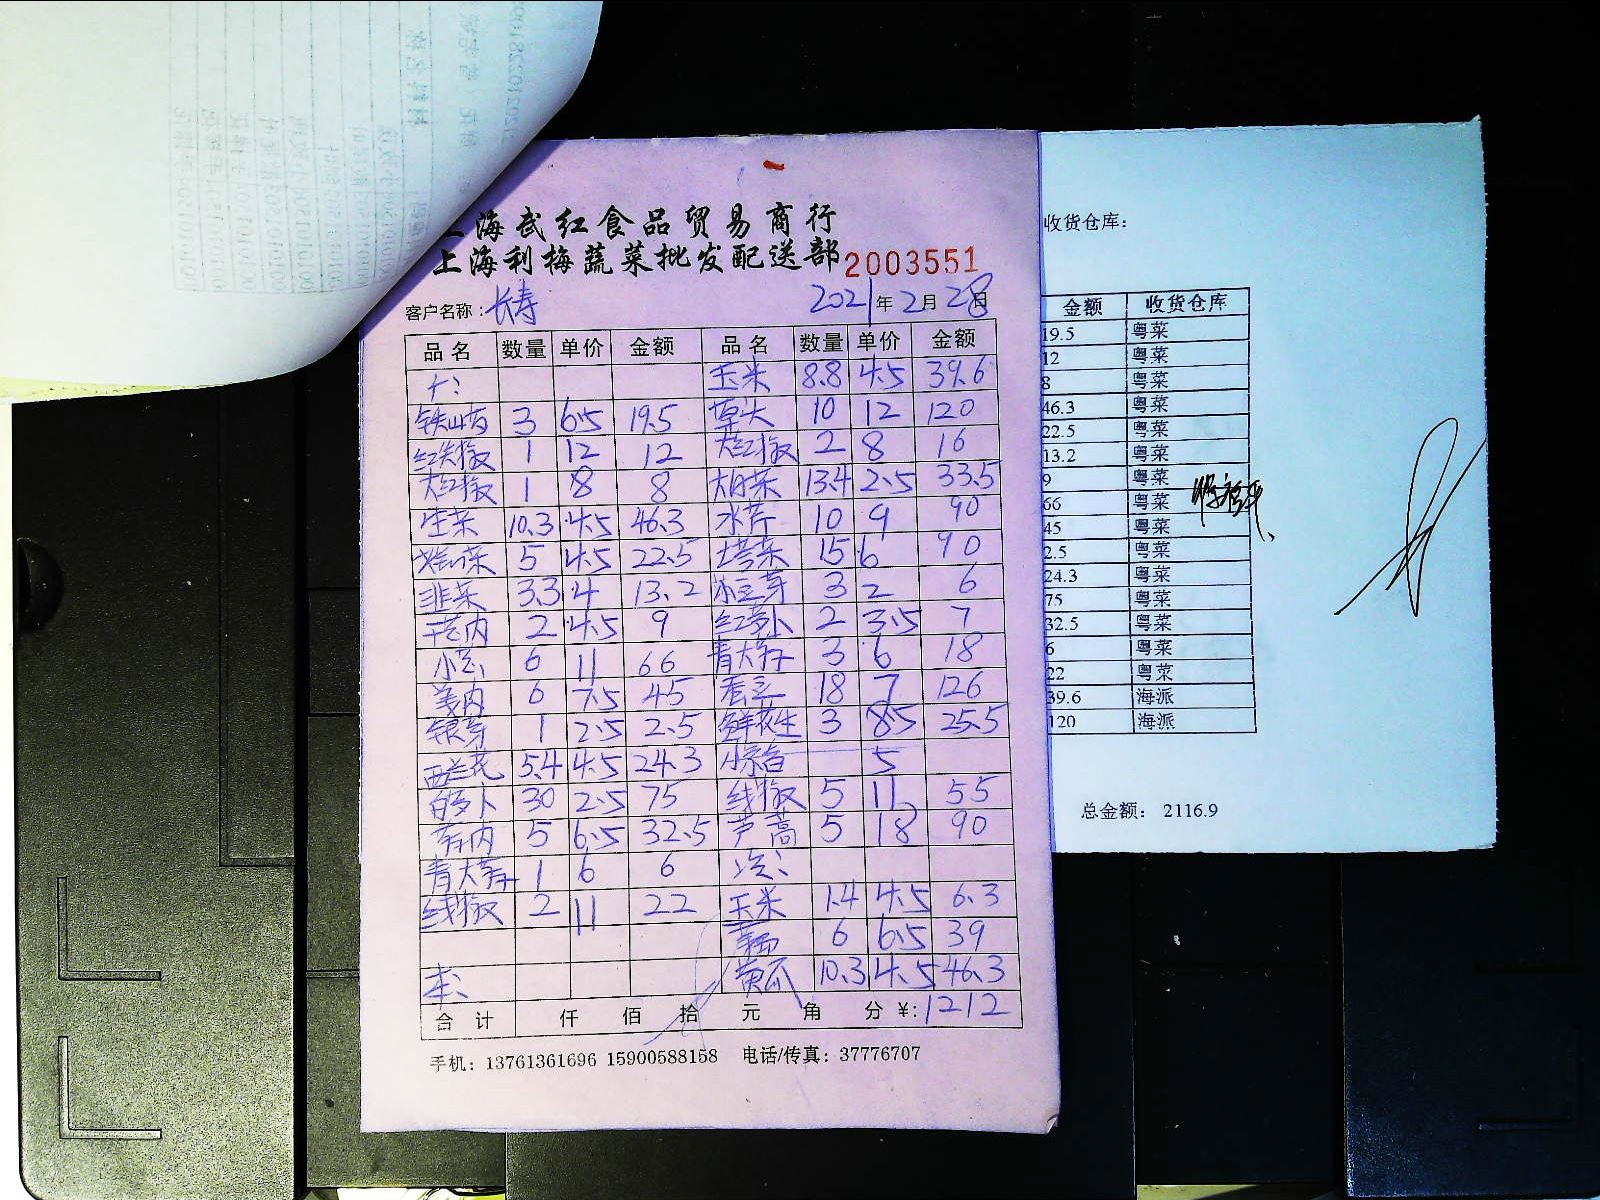 上海武红食品贸易商行
上海利梅蔬菜批发配送部 2003551
客户名称：长寿 2021年2月28日
品名 数量 单价 金额 品名 数量 单价 金额
玉米 8.8 4.5 39.6
铁山药 3 6.5 19.5 草头 10 12 120
红尖椒 1 12 12 大红椒 2 8 16
大红椒 1 8 8 大白菜 13.4 2.5 33.5
生菜 10.3 4.5 46.3 水芹 10 9 90
5 4.5 22.5 塔菜 15 6 90
韭菜 3.3 4 13.2 3 2 6
2 4.5 9 红萝卜 2 3.5 7
6 11 66 青大蒜子 3 6 18
6 7.5 45 18 7 126
银芽 1 2.5 2.5 鲜花生 3 8.5 25.5
西兰花 5.4 4.5 24.3 5
白萝卜 30 2.5 75 线椒 5 11 55
5 6.5 32.5 芦高 5 18 90
青大蒜子 1 6 6
线椒 2 11 22 玉米 1.4 4.5 6.3
6 6.5 39
黄瓜 10.3 4.5 46.3
合计 仟 佰 拾 元 角 分 ¥：1212
手机：13761361696 15900588158 电话/传真：37776707
收货仓库：
金额 收货仓库
19.5 粤菜
12 粤菜
8 粤菜
46.3 粤菜
22.5 粤菜
13.2 粤菜
9 粤菜
66 粤菜
45 粤菜
2.5 粤菜
24.3 粤菜
75 粤菜
32.5 粤菜
6 粤菜
22 粤菜
39.6 海派
120 海派
总金额： 2116.9